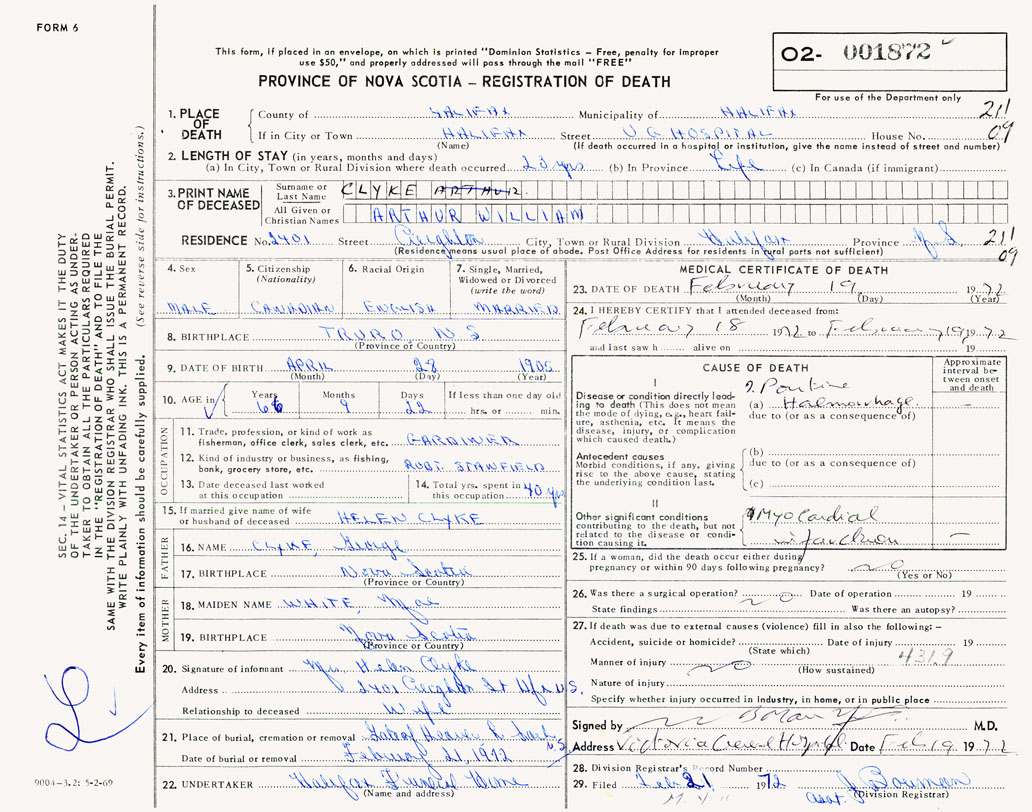 FORM 6
This form, if placed in an envelope, on which is printed "Dominion Statistics – Free, penalty for improper
use $50," and properly addressed will pass through the mail "FREE"
PROVINCE OF NOVA SCOTIA – REGISTRATION OF DEATH
O2- 001872
For use of the Department only
1. PLACE OF DEATH
County of HALIFAX Municipality of HALIFAX 211
If in City or Town HALIFAX Street V G HOSPITAL House No. 09
(Name) (If death occurred in a hospital or institution, give the name instead of street and number)
2. LENGTH OF STAY (in years, months and days)
(a) In City, Town or Rural Division where death occurred 23 yrs (b) In Province Life (c) In Canada (if immigrant)
3. PRINT NAME OF DECEASED
Surname or Last Name CLYKE ARTHUR
All Given or Christian Names ARTHUR WILLIAM
RESIDENCE No. 2401 Street Creighton City, Town or Rural Division Halifax Province N S 211
(Residence means usual place of abode. Post Office Address for residents in rural parts not sufficient) 09
4. Sex MALE
5. Citizenship (Nationality) CANADIAN
6. Racial Origin ENGLISH
7. Single, Married, Widowed or Divorced (write the word) MARRIED
8. BIRTHPLACE TRURO N S
(Province or Country)
9. DATE OF BIRTH APRIL 28 1905
(Month) (Day) (Year)
10. AGE in Years 66 Months 9 Days 22 If less than one day old
hrs. or min.
OCCUPATION
11. Trade, profession, or kind of work as fisherman, office clerk, sales clerk, etc. GARDINER
12. Kind of industry or business, as fishing, bank, grocery store, etc. ROBT. STANFIELD
13. Date deceased last worked at this occupation
14. Total yrs. spent in this occupation 40 yrs
15. If married give name of wife or husband of deceased HELEN CLYKE
FATHER
16. NAME CLYKE, George
17. BIRTHPLACE Nova Scotia
(Province or Country)
MOTHER
18. MAIDEN NAME WHITE, Mae
19. BIRTHPLACE Nova Scotia
(Province or Country)
20. Signature of informant Mrs Helen Clyke
Address 2401 Creighton St Hfx N.S.
Relationship to deceased Wife
21. Place of burial, cremation or removal Gate of Heaven L. Sack N.S.
Date of burial or removal February 21, 1972
22. UNDERTAKER Halifax Funeral Home
(Name and address)
MEDICAL CERTIFICATE OF DEATH
23. DATE OF DEATH February 19, 1972
(Month) (Day) (Year)
24. I HEREBY CERTIFY that I attended deceased from:
February 18 1972 to February 19 1972
and last saw h alive on 19
CAUSE OF DEATH
Approximate interval between onset and death
I
Disease or condition directly leading to death (This does not mean the mode of dying, e.g., heart failure, asthenia, etc. It means the disease, injury, or complication which caused death.)
? Pontine
(a) Haemorrhage –
due to (or as a consequence of)
Antecedent causes
Morbid conditions, if any, giving rise to the above cause, stating the underlying condition last.
(b)
due to (or as a consequence of)
(c)
II
Other significant conditions contributing to the death, but not related to the disease or condition causing it.
Myocardial
infarction –
25. If a woman, did the death occur either during
pregnancy or within 90 days following pregnancy? no
(Yes or No)
26. Was there a surgical operation? no Date of operation 19
State findings Was there an autopsy?
27. If death was due to external causes (violence) fill in also the following: –
Accident, suicide or homicide? Date of injury 19
(State which) 431.9
Manner of injury no
(How sustained)
Nature of injury
Specify whether injury occurred in industry, in home, or in public place
Signed by M.D.
Address Victoria General Hospital Date Feb 19 1972
28. Division Registrar's Record Number
29. Filed Feb 21 1972 Asst. J Bowman
(Division Registrar)
SEC. 14 – VITAL STATISTICS ACT MAKES IT THE DUTY
OF THE UNDERTAKER OR PERSON ACTING AS UNDERTAKER
TO OBTAIN ALL THE PARTICULARS REQUIRED
IN THE "REGISTRATION OF DEATH" AND TO FILE THE
SAME WITH THE DIVISION REGISTRAR WHO SHALL ISSUE THE BURIAL PERMIT.
WRITE PLAINLY WITH UNFADING INK. THIS IS A PERMANENT RECORD.
Every item of information should be carefully supplied. (See reverse side for instructions.)
9004-3.2: 5-2-69